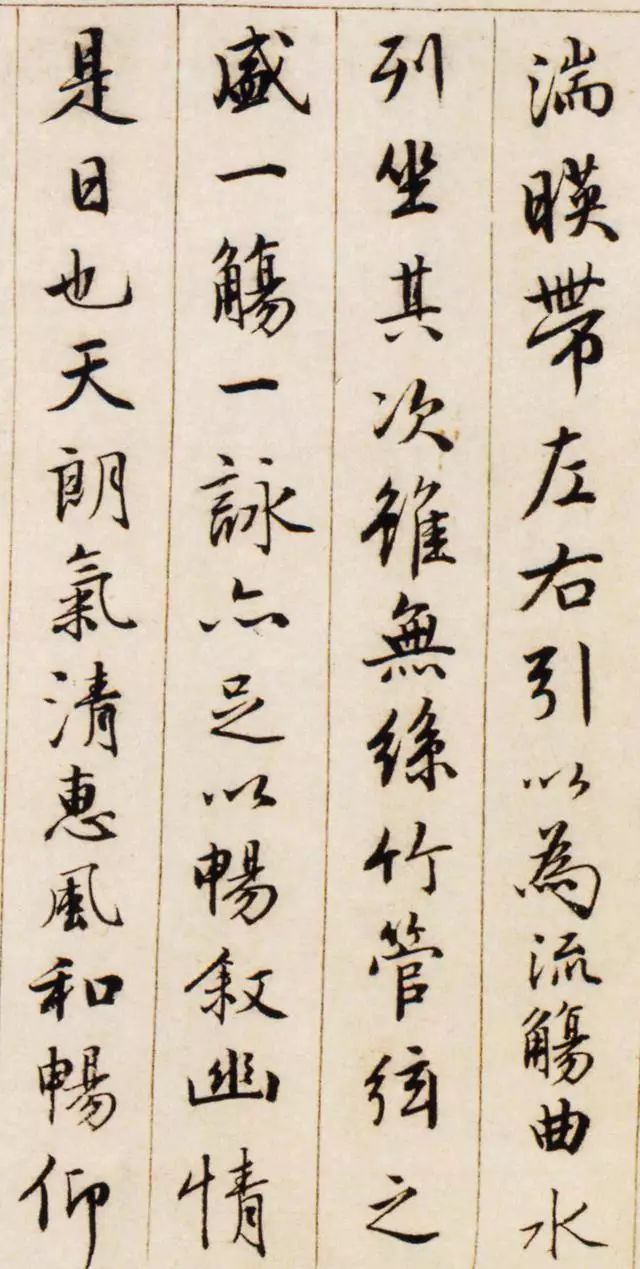 湍暎帶左右引以為流觴曲水
列坐其次雖無絲竹管絃之
盛一觴一詠亦足以暢叙幽情
是日也天朗氣清惠風和暢仰